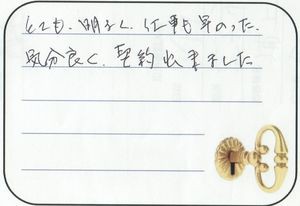 とても、明るく、仕事も早かった。
気分良く、契約出来ました